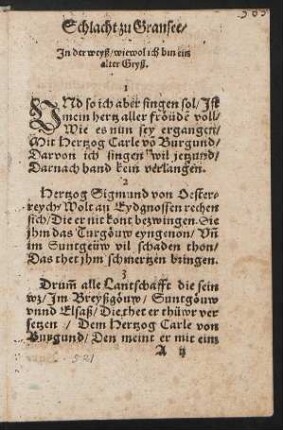 Schlacht zu Gransee/
In der weyß/ wiewol ich bin ein
alter Gryß.
1
VNd so ich aber singen sol/ Ist
mein hertz aller fröude voll/
Wie es nun sey ergangen/
Mit Hertzog Carle võ Burgund/
Darvon ich singen wil jetzund/
Darnach hand kein verlangen.
2
Hertzog Sigmund von Oester-
reych/ Wolt an Eydgnossen rechen
sich/ Die er nit kont bezwingen. Sie
jhm das Turgöuw eyngenon/ Vñ
im Suntgeüw vil schaden thon/
Das thet jhm schmertzen bringen.
3
Drumm alle Lantschafft die sein
wz/ Im Breyßgöuw/ Suntgöuw
vnnd Elsaß/ Die thet er thüwr ver
setzen/ Dem Hertzog Carle von
Burgund/ Den meint er mit eim
A ij
521